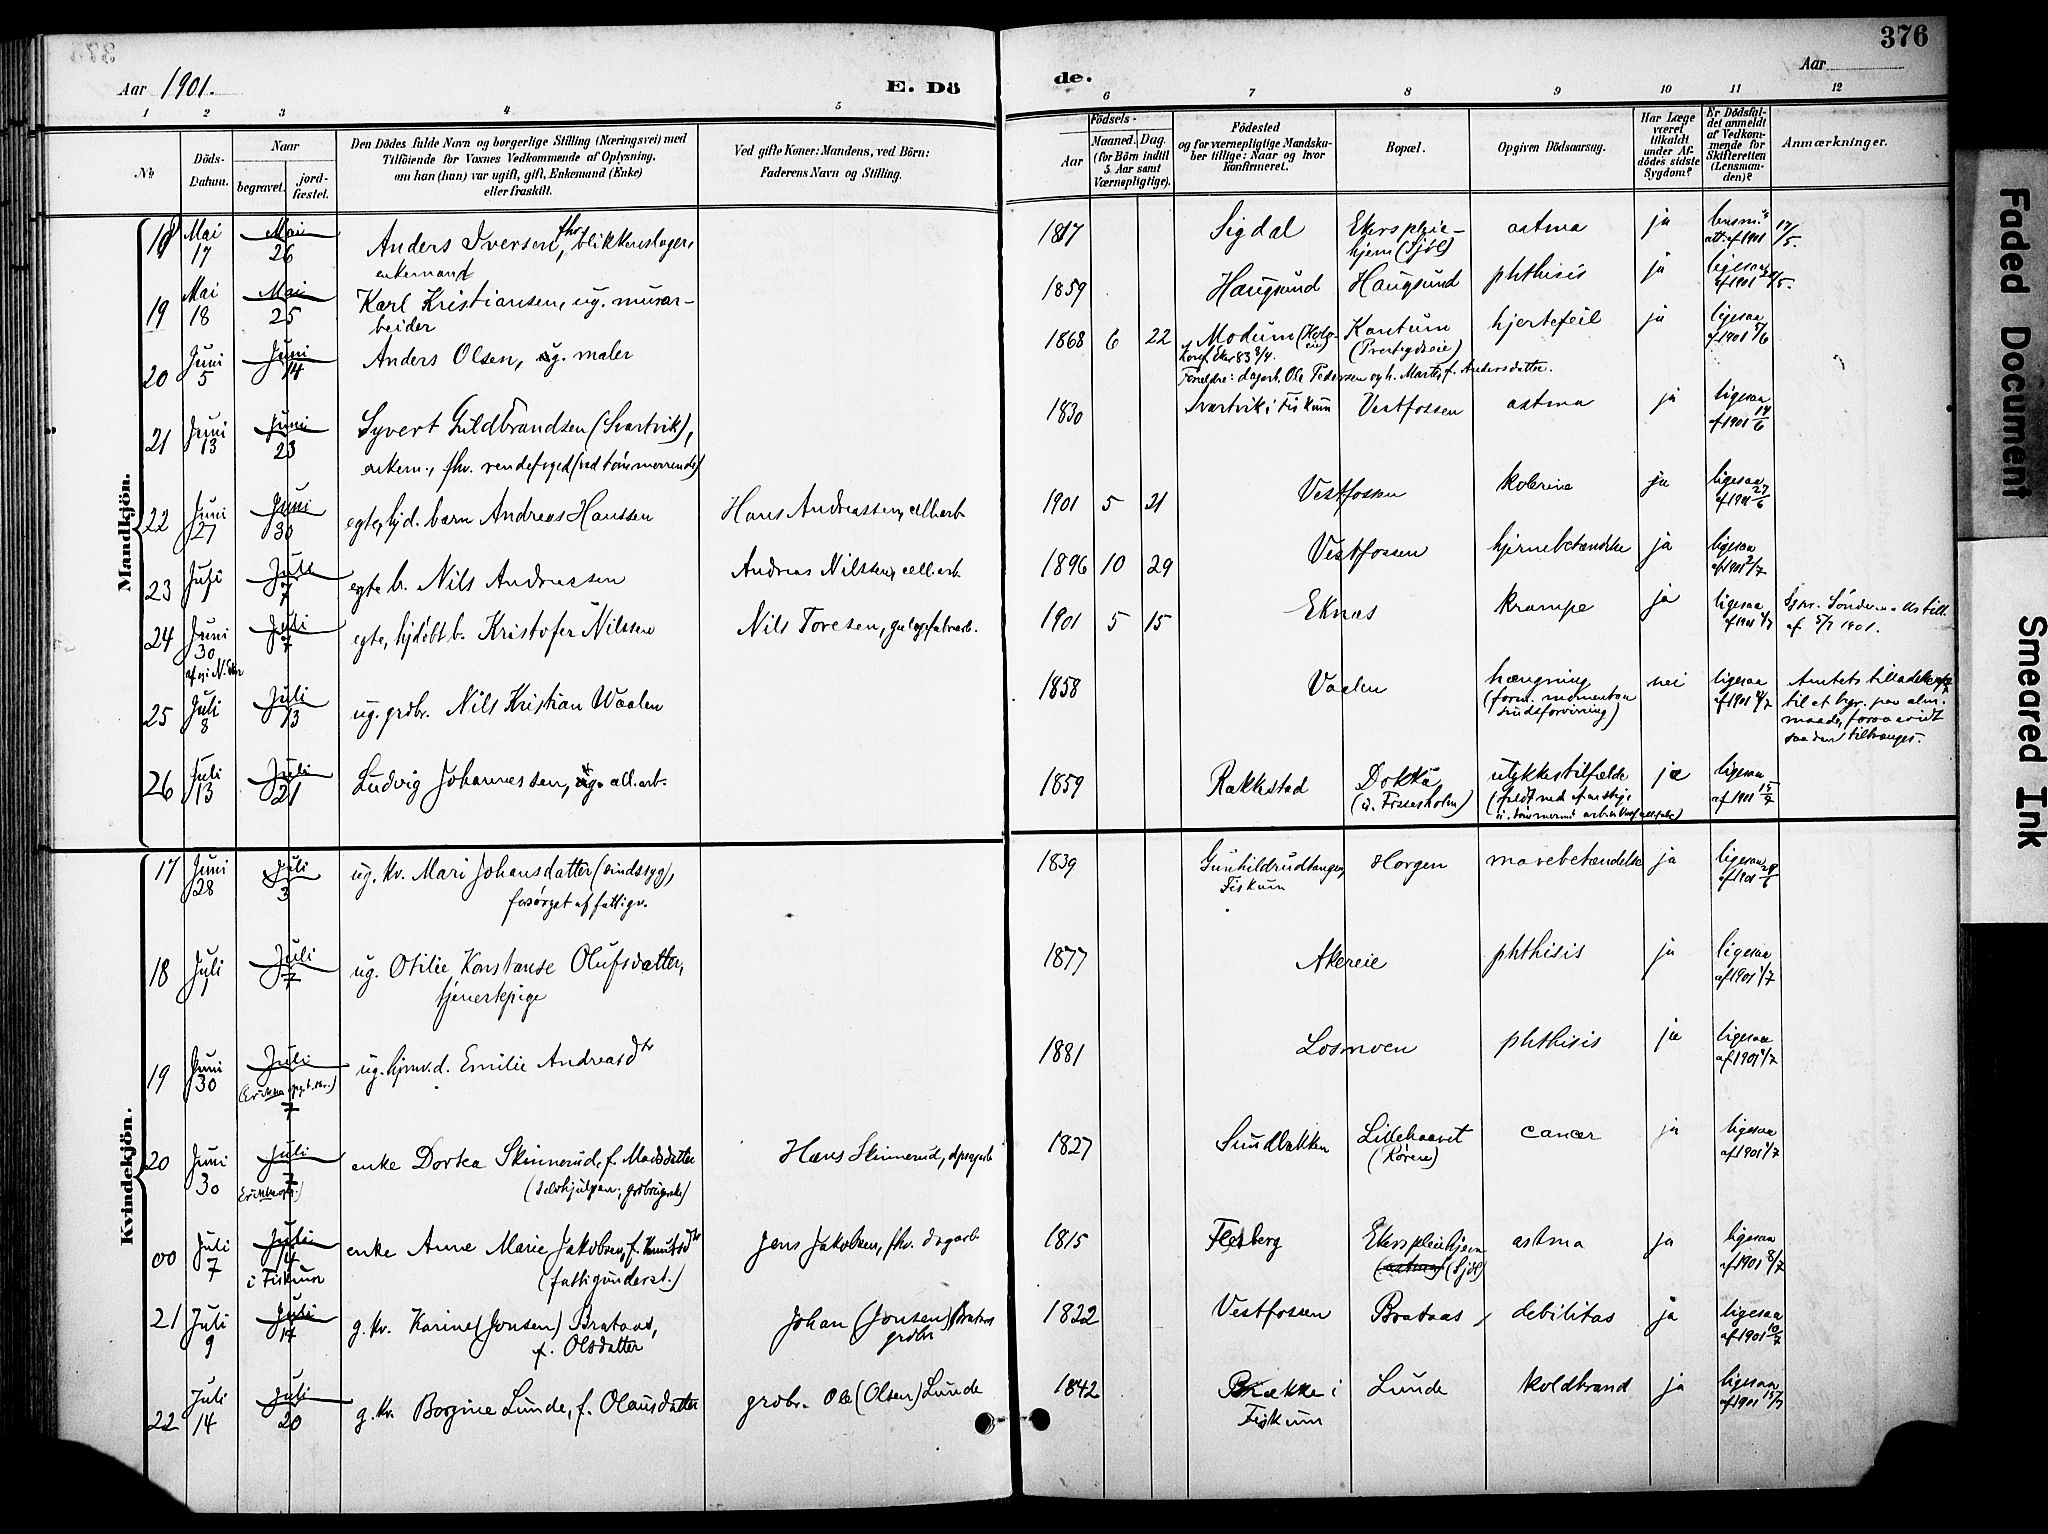 376
Aar 1901.
E. Dö
de.
Aar
1 2 3 4 5 6 7 8 9 10 11 12
No
Döds-Datum.
Naar
begravet.
jordfæstet.
Den Dödes fulde Navn og borgerlige Stilling (Næringsvei) med
Tilföiende for Voxnes Vedkommende af Oplysning,
om han (hun) var ugift, gift, Enkemand (Enke)
eller fraskilt.
Ved gifte Koner: Mandens, ved Börn:
Faderens Navn og Stilling.
Födsels-
Aar
Maaned. Dag.
(for Börn indtil
5 Aar samt
Værnepligtige).
Födested
og for værnepligtige Mandskaber tillige: Naar og hvor
konfirmeret.
Bopæl.
Opgiven Dödsaarsag.
Har Læge
været
tilkaldt
under Afdödes sidste
Sygdom?
Er Dödsfaldet anmeldt
af Vedkommende for
Skifteretten
(Lensmanden)?
Anmærkninger.
Mandkjön.
18 Mai 17 Mai 26 Anders Iversen, fhv. blikkenslager, enkemand 1817 Sigdal Ekerspleiehjem (Sjöl) astma ja lensm. att. af 1901 17/5.
19 Mai 18 Mai 25 Karl Kristiansen, ug. murarbeider 1859 Haugsund Haugsund phthisis ja ligesaa af 1901 /5.
20 Juni 5 Juni 14 Anders Olsen, ug. maler 1868 6 22 Modum Konf. Eker 83 Kantum hjertefeil ja ligesaa af 1901 /6
Forældre: dagarb. Ole Pedersen og h. Marte f. Andersdatter.
21 Juni 13 Juni 23 Syvert Guldbrandsen (Svartvik), enkem., fhv. rendefoged (ved tömmerrende) 1830 Svartvik i Fiskum Vestfossen astma ja ligesaa af 1901 14/6
22 Juni 27 Juni 30 egte, hjd. barn Andreas Hanssen Hans Andreassen, cell.arb. 1901 5 21 Vestfossen kolerine ja ligesaa af 1901 27/6
23 Juli 1 Juli 7 egte b. Nils Andreassen Andreas Nilssen, cell.arb. 1896 10 29 Vestfossen hjernebetændelse ja ligesaa af 1901 2/7
24 Juni 30 Juli 7 egte, hjdöbt b. Kristofer Nilssen Nils Toresen, 1901 5 15 Eknæs krampe ja ligesaa af 1901 /7 af 5/7 1901.
25 Juli 8 Juli 13 ug. grdbr. Nils Kristian Waalen 1858 Vaalen hængning (form. momentan sindsforvirring) nei ligesaa af 1901 /7 Amtets tilladelse til at begr. paa alm. maade, forsaavidt saadan tiltrænges.
26 Juli 13 Juli 21 Ludvig Johannessen, cell.arb. 1859 Rakkestad Dokka (v. Fossesholm) ulykkestilfælde ja ligesaa af 1901 15/7
Kvindekjön.
17 Juni 28 Juli 3 ug. kv. Mari Johansdatter (sindssyg), forsørget af fattigv. 1839 Gunhildrudtangen, Fiskum Horgen mavebetændelse ja ligesaa af 1901 /6
18 Juli 1 Juli 7 ug. Otilie Konstanse Olufsdatter, tjenestepige 1877 Akereie phthisis ja ligesaa af 1901 /7
19 Juni 30 Juli 7 ug. hjmv. d. Emilie Andreasdtr 1881 Losmoen phthisis ja ligesaa af 1901 /7
20 Juni 30 Juli 7 enke Dortea Skinnerud, f. Madsdatter (selvhjulpen; grdbrugerske) Hans Skinnerud, 1827 Sundbakken Lillehaavet cancer ja ligesaa af 1901 1/7
00 Juli 7 Juli 14 i Fiskum enke Anne Marie Jakobsen, f. Knutsdtr (fattigunderst.) Jens Jakobsen, fhv. dagarb. 1815 Flesberg Ekerspleiehjem (astma) (Sjöl) astma ja ligesaa af 1901 8/7
21 Juli 9 Juli 17 g. kv. Karine (Jonsen) Brataas, f. Olsdatter Johan (Jonsen) Brataas grdbr 1822 Vestfossen Brataas debilitas ja ligesaa af 1901 10/7
22 Juli 14 Juli 20 g. kv. Borgine Lunde, f. Olausdatter grdbr. Ole (Olsen) Lunde 1842 Brække i Fiskum Lunde koldbrand ja ligesaa af 1901 15/7
Faded Document
Smeared Ink